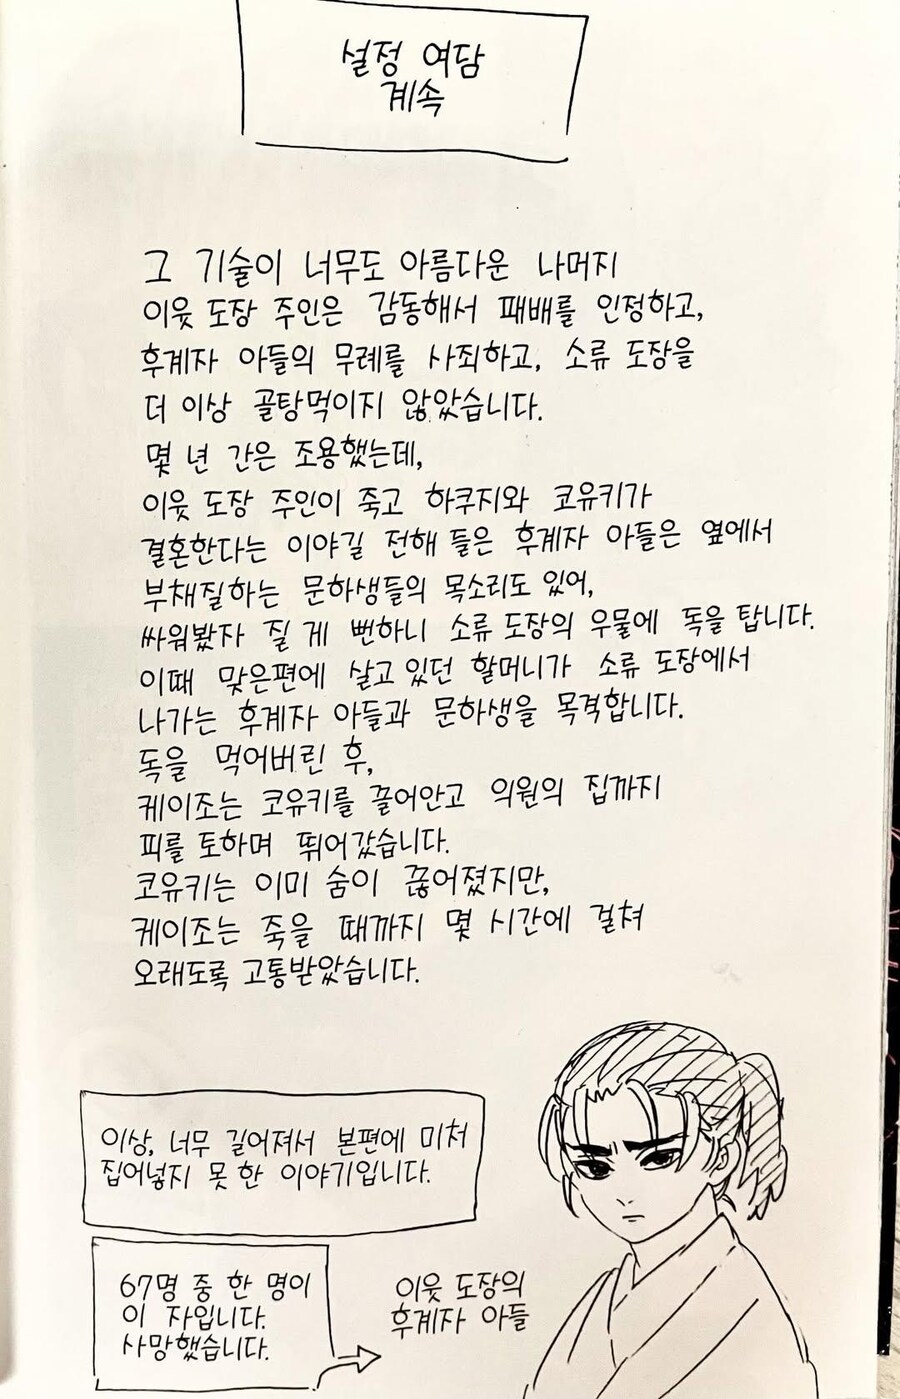 설정 여담
계속
그 기술이 너무도 아름다운 나머지
이웃 도장 주인은 감동해서 패배를 인정하고,
후계자 아들의 무례를 사죄하고, 소류 도장을
더 이상 골탕먹이지 않았습니다.
몇 년 간은 조용했는데,
이웃 도장 주인이 죽고 하쿠지와 코유키가
결혼한다는 이야길 전해 들은 후계자 아들은 옆에서
부채질하는 문하생들의 목소리도 있어,
싸워봤자 질 게 뻔하니 소류 도장의 우물에 독을 탑니다.
이때 맞은편에 살고 있던 할머니가 소류 도장에서
나가는 후계자 아들과 문하생을 목격합니다.
독을 먹어버린 후,
케이조는 코유키를 끌어안고 의원의 집까지
피를 토하며 뛰어갔습니다.
코유키는 이미 숨이 끊어졌지만,
케이조는 죽을 때까지 몇 시간에 걸쳐
오래도록 고통받았습니다.
이상, 너무 길어져서 본편에 미처
집어넣지 못 한 이야기입니다.
67명 중 한 명이
이 자입니다.
사망했습니다.
이웃 도장의
후계자 아들